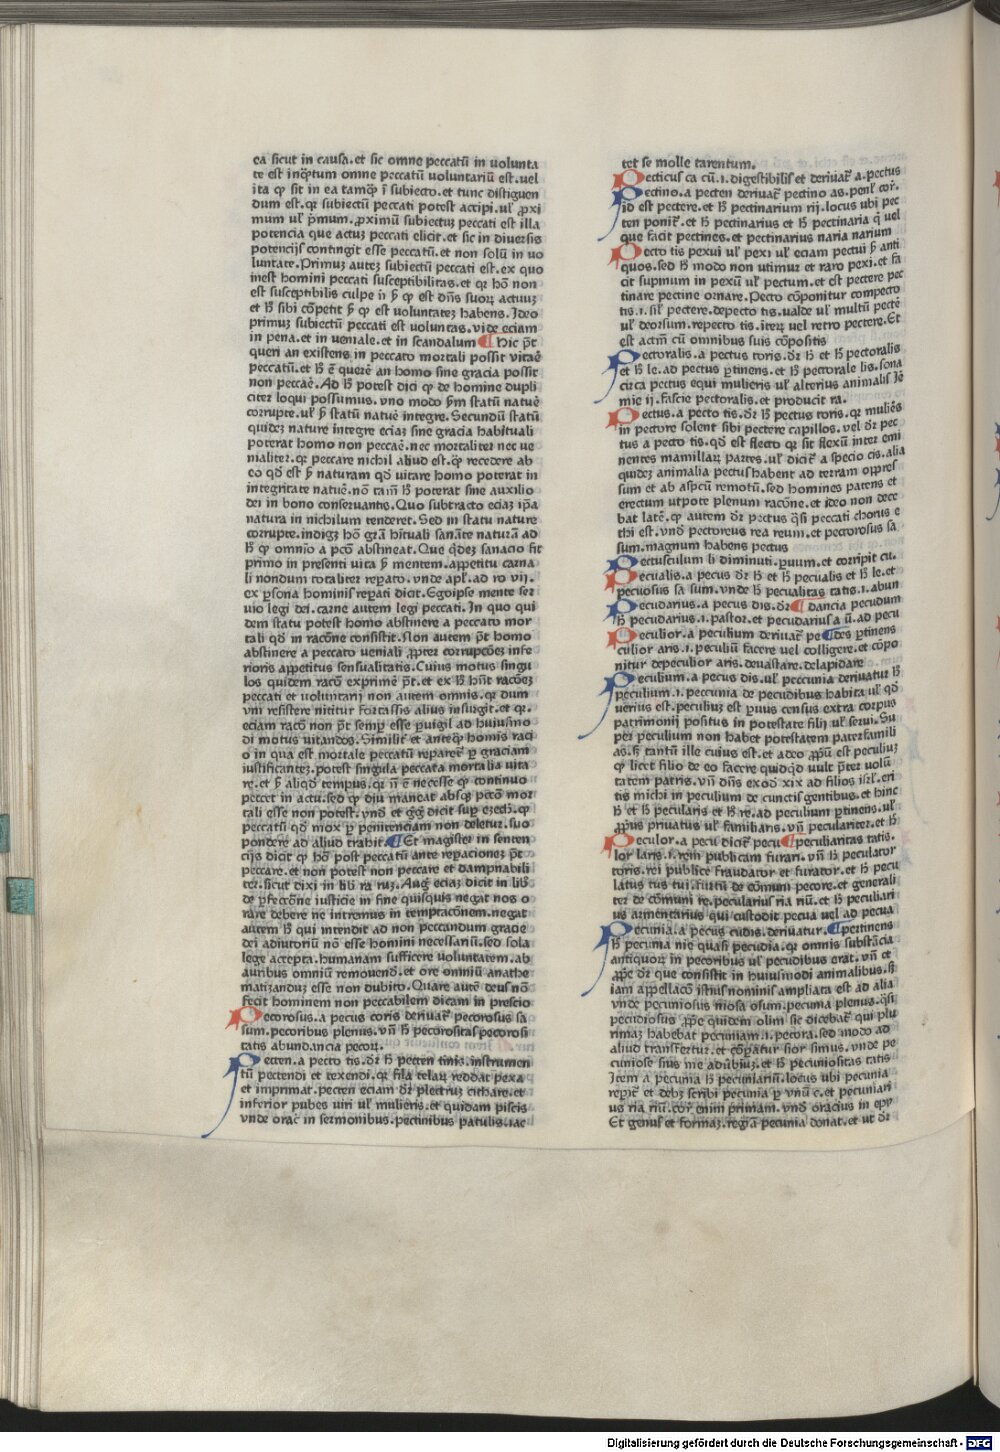 ca sicut in causa.et sic omne peccatū in uolunta
te est inq̄tum omne peccatum uoluntariū est.uel
ita ꝙ sit in ea tamꝙ ī subiecto.et tunc distiguen
dum est.qꝛ subiectū peccati potest accipi.ul' ꝓxi
mum ul' pͥmum.ꝓximū subiectuꝫ peccati est illa
potencia que actuꝫ peccati elicit.et sic in diuersis
potencijs contingit esse peccatū.et non solū in uo
luntate.Primuꝫ auteꝫ subiectū peccati est.ex quo
inest homini peccati susceptibilitas.et qꝛ hō non
est susceptibilis culpe n ꝙ est dn̄s suoꝝ actuuꝫ
et h̄ sibi cōpetit ꝙ est uoluntateꝫ habens.Ideo
primuꝫ subiectū peccati est uoluntas.vide eciam
in pena.et in ueniale.et in scandalum ¶ Hic pōt
queri an existens in peccato mortali possit vitaē
peccatū.et h̄ ē querē an homo sine gracia possit
non peccaē.Ad h̄ potest dici ꝙ de homine dupli
citer loqui possumus.vno modo ẜm statū natuē
corrupte.ul' statū natuē integre.Secundū statū
quideꝫ nature integre eciaꝫ sine gracia habituali
poterat homo non peccaē.nec mortaliter nec ue
nialiter.qꝛ peccare nichil aliud est.ꝙ recedere ab
eo qd̄ est naturam qd̄ uitare homo poterat in
integritate natuē.nō tam̄ h̄ poterat sine auxilio
dei in bono conseruantis.Quo subtracto eciaꝫ ip̄a
natura in nichilum tenderet.Sed in statu nature
corrupte.indigꝫ hō gr̄a hītuali sanāte naturā ad
h̄ ꝙ omnīo a pcō abstineat.Que qͥdeꝫ sanacio fit
primo in presenti uita mentem.appetitu carna
li nondum totaliter repato.vnde apl's.ad ro vij.
ex ꝑsona hominis repati dicit.Egoipse mente ser
uio legi dei.carne autem legi peccati.In quo qui
dem statu potest homo abstinere a peccato mor
tali qd̄ in racōne consistit.Non autem pōt homo
abstinere a peccato ueniali ꝓpter corrupcōeꝫ infe
rioris appetitus sensualitatis.Cuius motus singu
los quidem racō exprimē pōt.et ex h̄ hn̄t racōeꝫ
peccati et uoluntarij non autem omnis.qꝛ dum
vni resistere nititur fortassis alius insurgit.et qꝛ
eciam racō non pōt semꝑ esse ꝑuigil ad huiusmo
di motus vitandos.Similit̄ et anteꝙ homīs raci
o in qua est mortale peccatū repareꝉ ꝑ graciam
iustificanteꝫ.potest singula peccata mortalia uita
re.et aliqd̄ tempus.qꝛ n̄ ē necesse ꝙ continuo
peccet in actu.sed ꝙ diu maneat absqꝫ pccō mor
tali esse non potest.vnd̄ et g̊g̊ dicit suꝑ ezech̄.ꝙ
peccatū qd̄ mox ꝑ penitenciam non deletur.suo
pondere ad aliud trahit ¶ Et magister in senten
cijs dicit ꝙ hō post peccatū ante repacioneꝫ pōt
peccare.et non potest non peccare et dampnabili
ter.sicut dixi in lib̄ ra ruꝫ.Aug̊ eciaꝫ dicit in lib̄
de ꝑfeccōne iusticie in fine quisquis negat nos o
rare debere ne intremus in temptacōnem.negat
autem h̄ qui intendit ad non peccandum gracie
dei adiutoriū nō esse homini necessariū.sed sola
lege accepta.humanam sufficere uoluntatem.ab
auribus omniū remouend̄.et ore omniū anathe
matizanduꝫ esse non dubito.Quare autē deus nō
fecit hominem non peccabilem dicam in prescio
Pecorosus.a pecus coris deriuat̄ pecorosus sa
sum.pecoribus plenus.vn̄ h̄ pecorositas pecorosi
tatis abundancia pecoꝝ.
Pecten.a pecto tis.dr̄ h̄ pecten tinis.instrumen
tū pectendi et texendi.qꝛ fila telaꝝ reddat pexa
et imprimat.pecten eciam dr̄ plectruꝫ cithare.et
inferior pubes uiri ul' mulieris.et quidam piscis
vnde orac̄ in sermonibus.pectinibus patulis.iac
tet se molle tarentum.
Pecticus ca cū.i.digestibilis et deriuat̄ a.pectus
Pectino.a pecten deriuat̄ pectino as.penl' cor̄.
id est pectere.et h̄ pectinarium rij.locus ubi pec
ten ponit̄.et h̄ pectinarius et h̄ pectinaria q̄ uel
que facit pectines.et pectinarius naria narium
Pecto tis pexui ul' pexi ul' eciam pectui anti
quos.sed h̄ modo non utimur et raro pexi.et fa
cit supinum in pexū ul' pectum.et est pectere pec
tinare pectine ornare.Pecto cōponitur compecto
tis.i.sil' pectere.depecto tis.ualde ul' multū pectē
ul' deorsum.repecto tis.iterꝝ uel retro pectere.Et
est actm̄ cū omnibus suis cōpositis
Pectoralis.a pectus toris.dr̄ h̄ et h̄ pectoralis
et h̄ le.ad pectus ꝑtinens.et h̄ pectorale lis.sona
circa pectus equi mulieris ul' alterius animalis Ie
mie ij.fascie pectoralis.et producit ra.
Pectus.a pecto tis.dr̄ h̄ pectus toris.qꝛ muliēs
in pectore solent sibi pectere capillos.vel dr̄ pec
tus a pecto tis.qd̄ est flecto qꝛ sit flexū inter emi
nentes mamillaꝝ partes.ul' dicit̄ a specio cis.alia
quideꝫ animalia pectus habent ad terram oppres
sum et ab aspcū remotū.sed homines patens et
erectum utpote plenum racōne.et ideo non dece
bat latē.ꝙ autem dr̄ pectus q̄si peccati chorus e
thi est.vnd̄ pectoreus rea reum.et pectorosus sa
sum.magnum habens pectus
Pectusculum li diminuti.ꝑuum.et corripit cu.
Pecualis.a pecus dr̄ h̄ et h̄ pecualis et h̄ le.et
pecuosus sa sum.vnde h̄ pecualitas tatis.i.abun
Pecudarius.a pecus dis.dr̄ ¶ dancia pecudum
h̄ pecudarius.i.pastor.et pecudarius a ū.ad pecu
Peculior.a peculium deriuat̄ pe ¶ des ꝑtinens
culior aris.i.peculiū facere vel colligere.et cōpo
nitur depeculior aris.deuastare.delapidare
Peculium.a pecus dis.ul' peccunia deriuatur h̄
peculium.i.peccunia de pecudibus habita ul' qd̄
uerius est.peculiuꝫ est ꝑuus census extra corpus
patrimonij positus in potestate filij ul' serui.Su
per peculium non habet potestatem paterfamili
as.ẜ tantū ille cuius est.et adeo ꝓpͥū est peculiuꝫ
ꝙ licet filio de eo facere quidqd̄ uult pͥter uolū
tatem patris.vn̄ dn̄s exod̄ xix ad filios isrl'.eri
tis michi in peculium de cunctis gentibus.et hinc
h̄ et h̄ pecularis et h̄ re.ad peculium ꝑtinens.ul'
ꝓpͥus priuatus ul' familiaris.vn̄ peculariter.et h̄
Peculor.a pecu dicit̄ pecu ¶ peculiaritas tatis.
lor laris.i.rem publicam furari.vn̄ h̄ peculator
toris.rei publice fraudator et furator.et h̄ pecu
latus tus tui.furtū de cōmuni pecore.et generali
ter de cōmuni re.pecularius ria riū.et h̄ peculiari
us armentarius qui custodit pecua uel ad pecua
Pecunia.a pecus cudis.deriuatur. ¶ pertinens
h̄ pecunia nie quasi pecudia.qꝛ omnis substācia
antiquoꝝ in pecoribus ul' pecudibus erat.vn̄ et
ꝓpͥe dr̄ que consistit in huiusmodi animalibus.ẜ
iam appellacō istius nominis ampliata est ad alia
vnde pecuniosus niosa osum.pecunia plenus.q̄si
pecudiosus ꝓpͥe quidem olim sic dicebat̄ qui plu
rimaꝫ habebat pecuniam.i.pecora.sed modo ad
aliud transfertur.et cōpatur sior simus.vnde pe
cuniose sius me adūbiuꝫ.et h̄ pecuniositas tatis
Item a pecunia h̄ pecuniariū.locus ubi pecunia
repit̄ et debꝫ scribi pecunia ꝑ vnū c.et pecuniari
us ria riū.cor̄ enim primam.vnd̄ oracius in epy
Et genus et formaꝫ.regīa pecunia donat.et ut dr̄
Digitalisierung gefördert durch die Deutsche Forschungsgemeinschaft - DFG